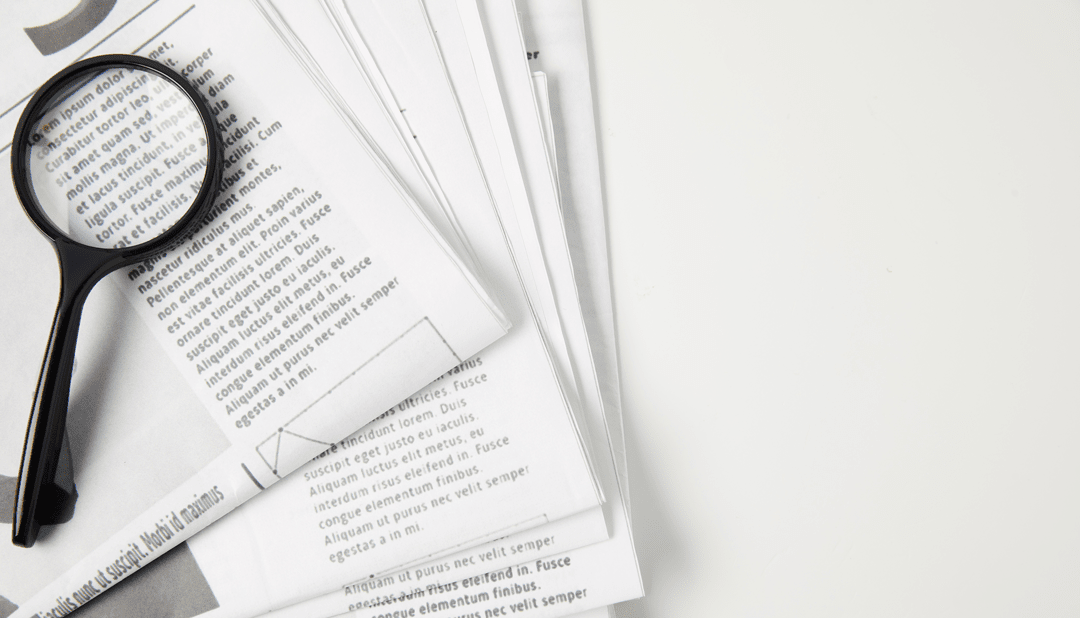 Lorem ipsum dolor met,
consectetur adipiscin elit.
Curabitur tortor leo, corper
sit amet quam sed, vest dum
mollis magna. Ut imper diam
et lacus tincidunt, in ve ula
ligula suscipit. Fusce a que
tortor. Fusce maximu incidunt
at et facilisis. N facilisi. Cum
magnis parturient montes,
nascetur ridiculus mus.
Pellentesque at aliquet sapien,
non elementum elit. Proin varius
est vitae facilisis ultricies. Fusce
ornare tincidunt lorem. Duis
suscipit eget justo eu iaculis.
Aliquam luctus elit metus, eu
interdum risus eleifend in. Fusce
congue elementum finibus.
Aliquam ut purus nec velit semper
egestas a in mi.
iaculis nunc ut suscipit. Morbi id maximus
er
varius
ultricies. Fusce
tincidunt lorem. Duis
suscipit eget justo eu iaculis.
Aliquam luctus elit metus, eu
interdum risus eleifend in. Fusce
congue elementum finibus.
Aliquam ut purus nec velit semper
egestas a in mi.
Aliquam ut purus nec velit semper
risus eleifend in. Fusce
congue elementum finibus.
purus nec velit semper